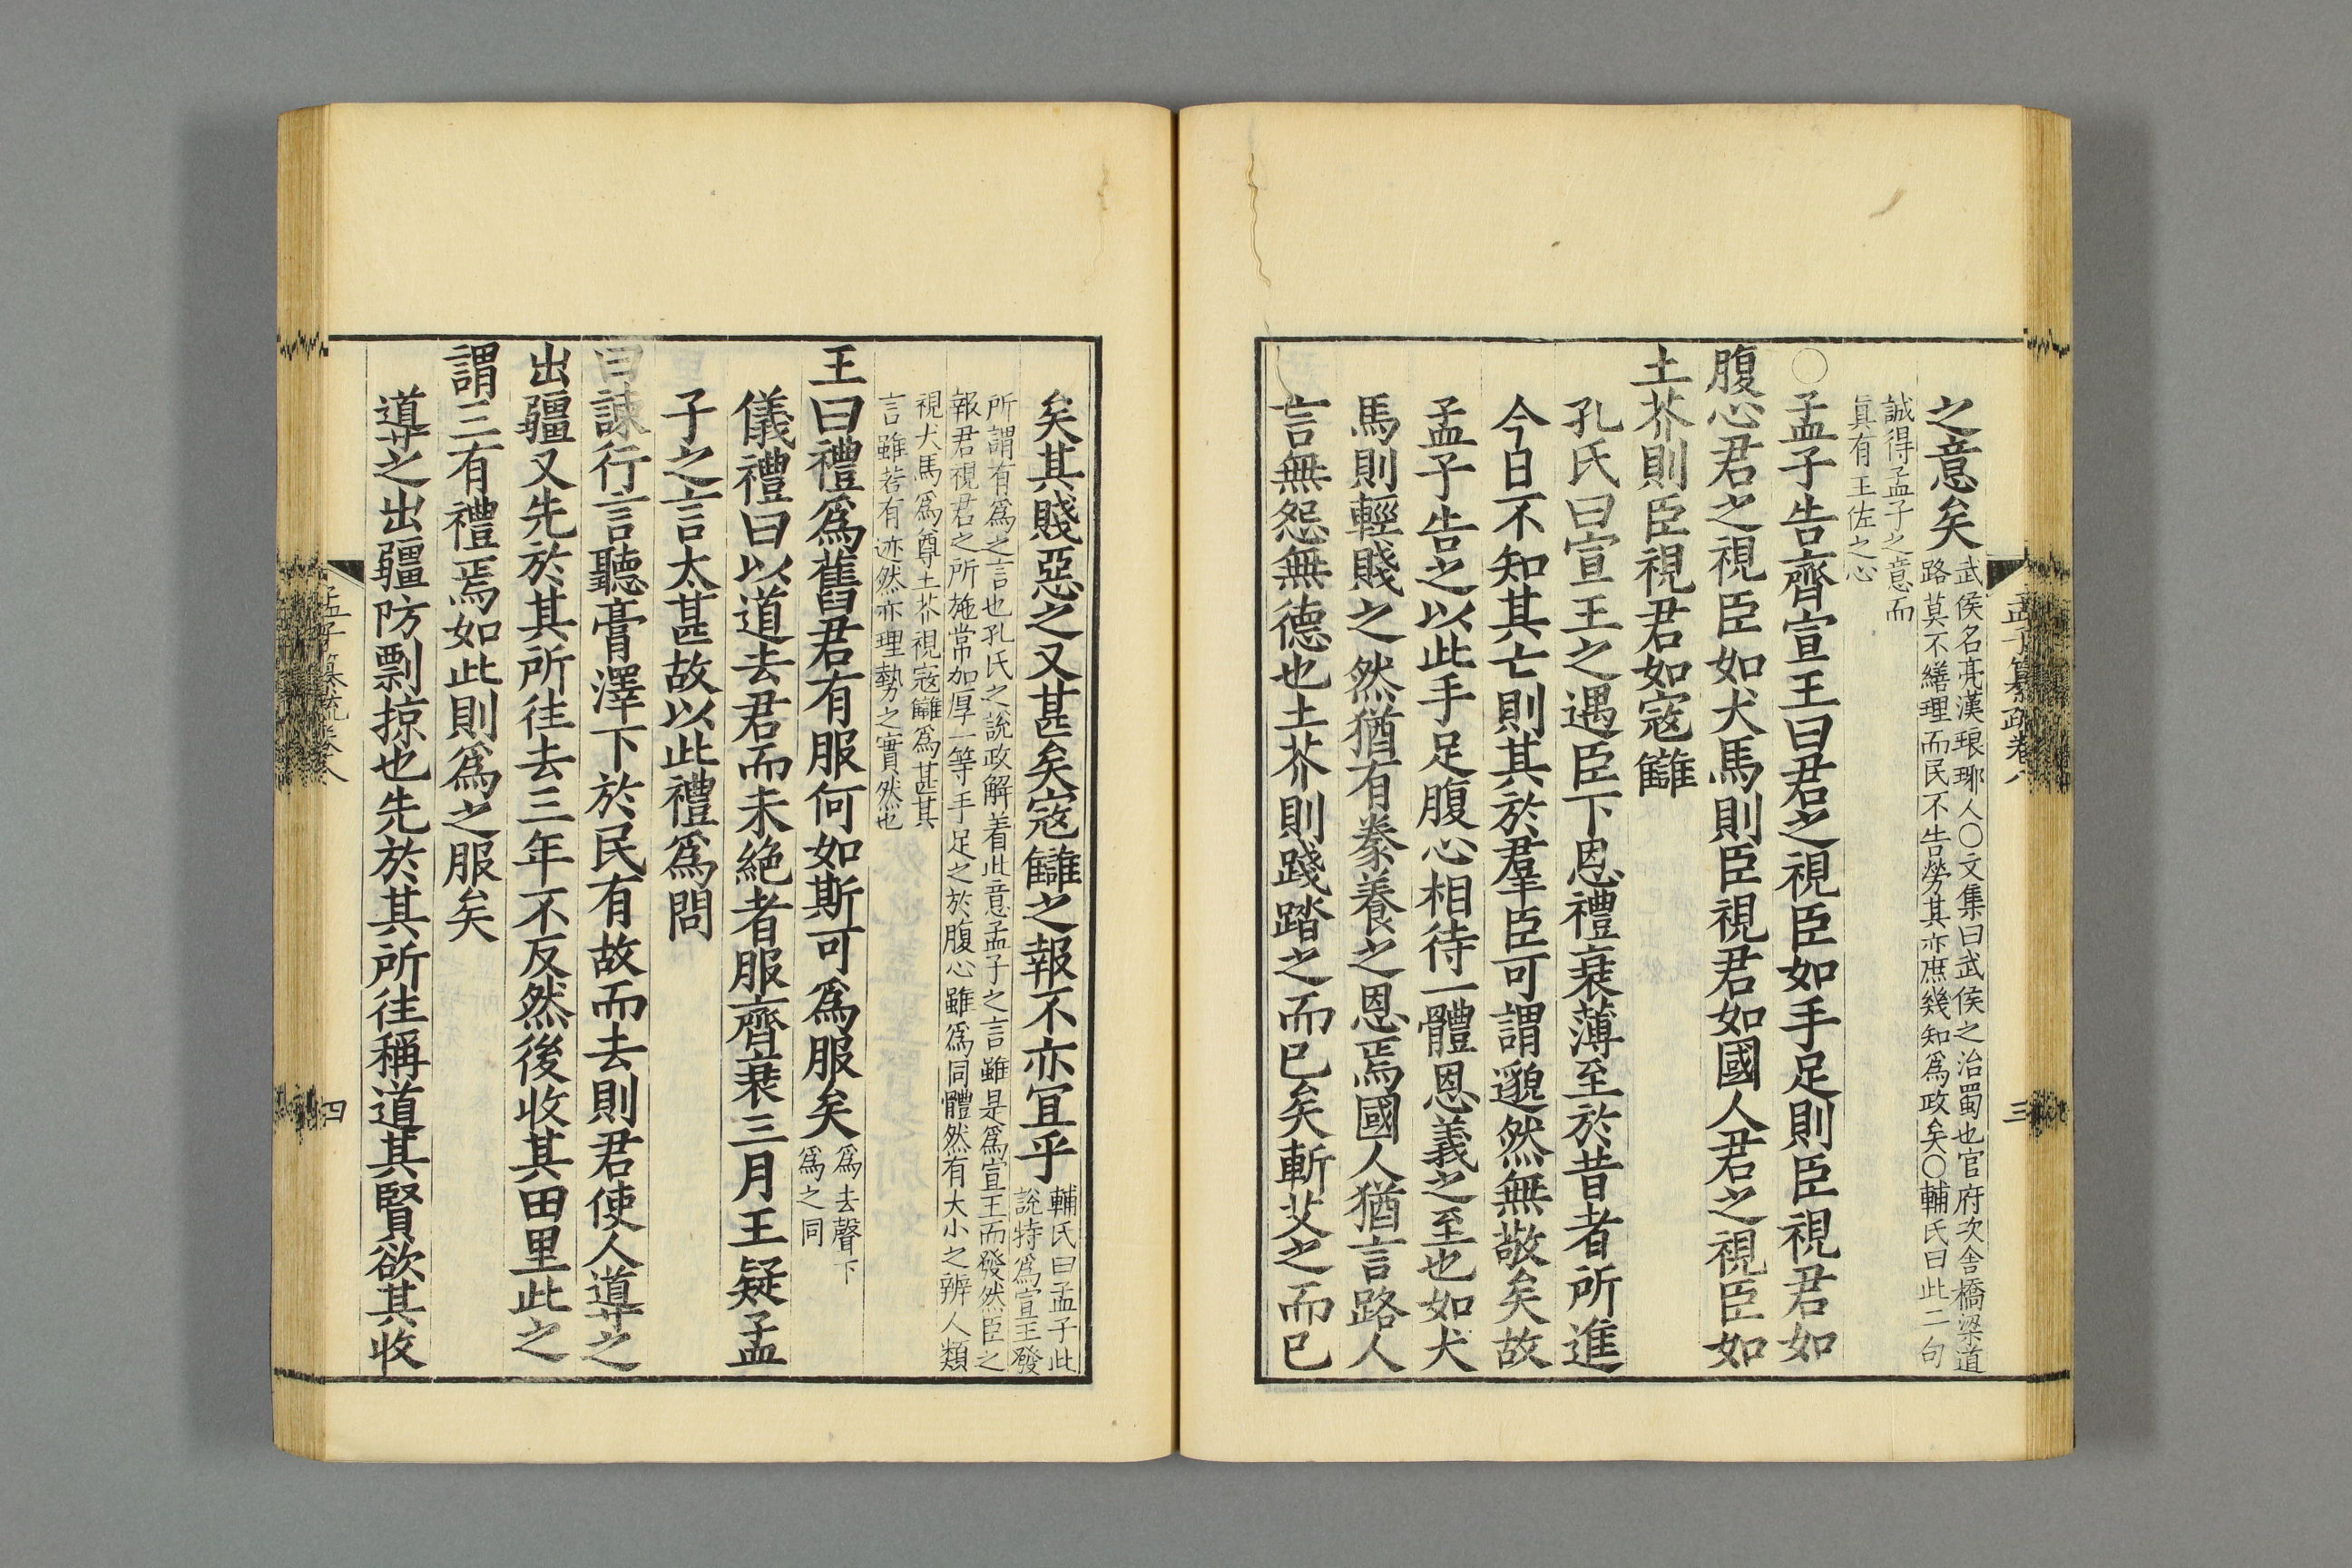 之意矣
武侯名亮漢琅琊人○文集曰武侯之治蜀也官府次舍橋梁道
路莫不繕理而民不告勞其亦庶幾知爲政矣○輔氏曰此二句
誠得孟子之意而
眞有王佐之心
○孟子告齊宣王曰君之視臣如手足則臣視君如
腹心君之視臣如犬馬則臣視君如國人君之視臣如
土芥則臣視君如寇讎
孔氏曰宣王之遇臣下恩禮衰薄至於昔者所進
今日不知其亡則其於羣臣可謂邈然無敬矣故
孟子告之以此手足腹心相待一體恩義之至也如犬
馬則輕賤之然猶有豢養之恩焉國人猶言路人
言無怨無德也土芥則踐踏之而已矣斬艾之而已
孟子纂疏卷八
三
矣其賤惡之又甚矣寇讎之報不亦宜乎
輔氏曰孟子此
說特爲宣王發
所謂有爲之言也孔氏之說政解着此意孟子之言雖是爲宣王而發然臣之
報君視君之所施常加厚一等手足之於腹心雖爲同體然有大小之辨人類
視犬馬爲尊土芥視寇讎爲甚其
言雖若有迹然亦理勢之實然也
王曰禮爲舊君有服何如斯可爲服矣
爲去聲下
爲之同
儀禮曰以道去君而未絶者服齊衰三月王疑孟
子之言太甚故以此禮爲問
曰諫行言聽膏澤下於民有故而去則君使人導之
出疆又先於其所往去三年不反然後收其田里此之
謂三有禮焉如此則爲之服矣
導之出疆防剽掠也先於其所往稱道其賢欲其收
孟子纂疏卷八
四